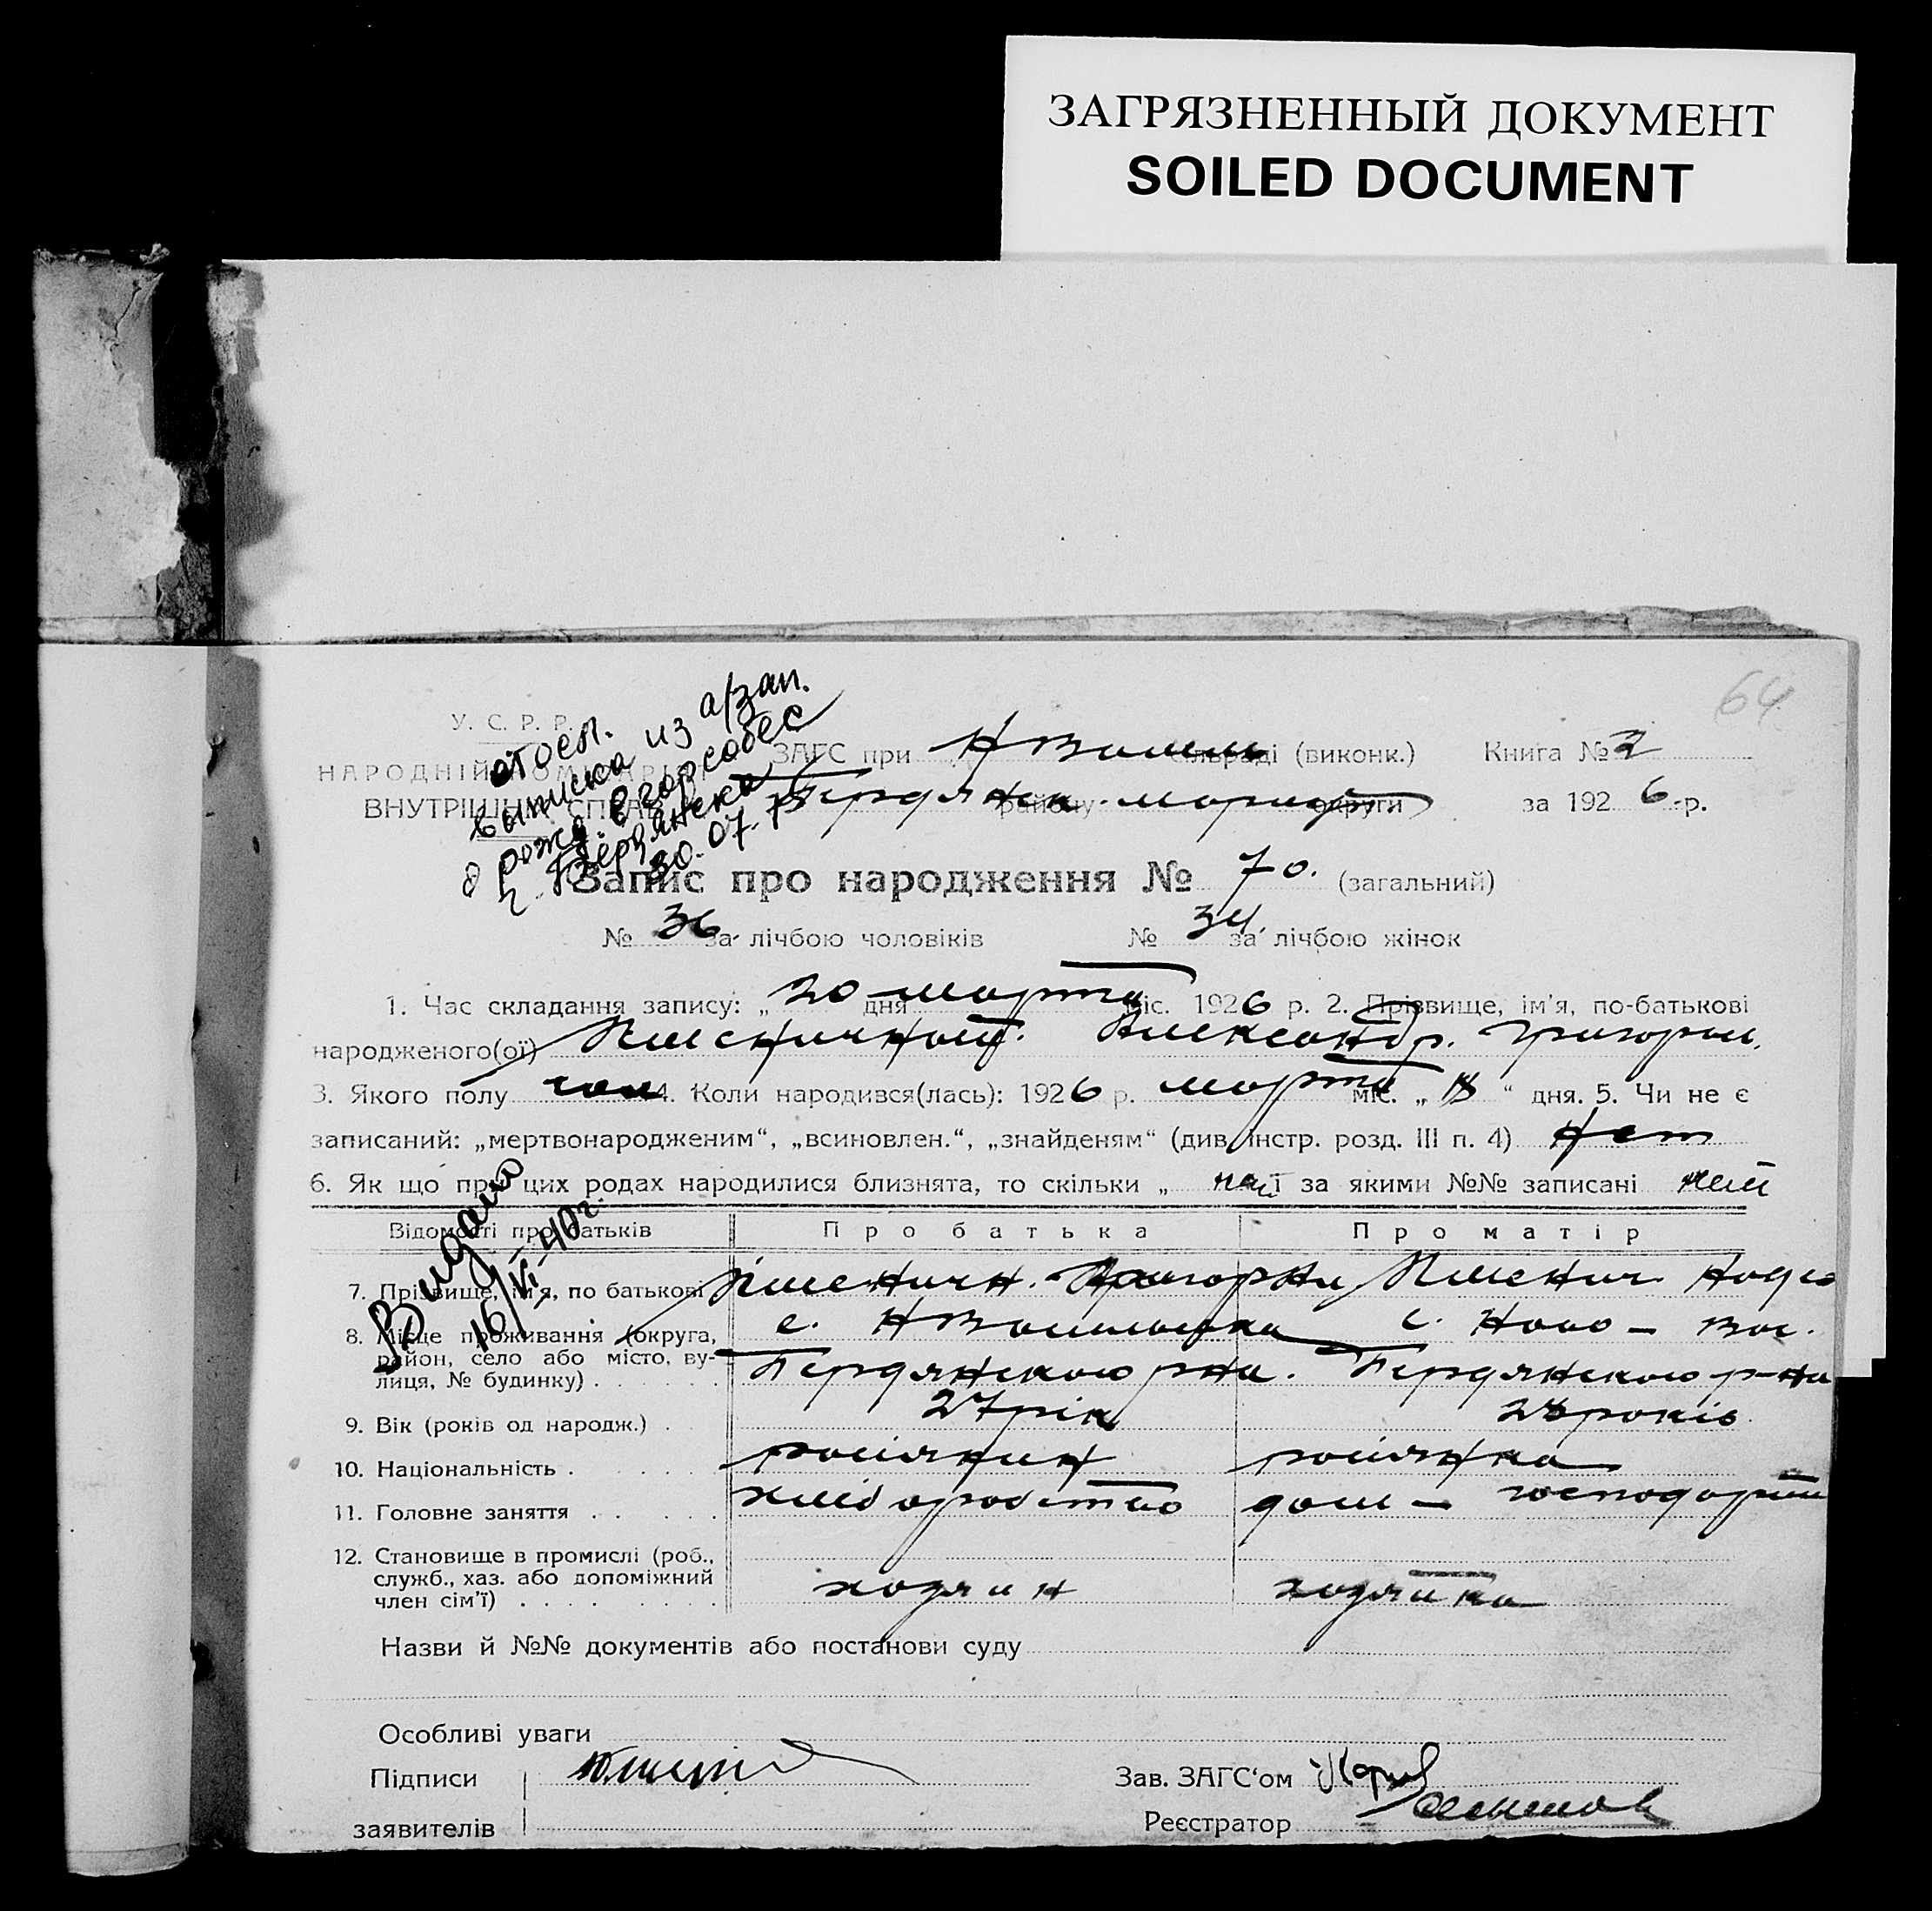 ЗАГРЯЗНЕННЫЙ ДОКУМЕНТ
SOILED DOCUMENT
64
У. С. Р. Р.
НАРОДНІЙ КОМІСАРІЯТ
ВНУТРІШНІХ СПРАВ
отосл.
выписка из а/зап.
о рожд. в горсобес
г. Бердянска
30.07.75
ЗАГС при сільраді (виконк.) Книга № 2
Бердянск. району округи за 1926 р.
Запис про народження № 70. (загальний)
№ 36 за лічбою чоловіків № 34 за лічбою жінок
1. Час складання запису: „ 20 дня марта міс. 1926 р. 2. Прізвище, ім'я, по-батькові
народженого(ої) Пшеничный. Александр. Григорьи.
3. Якого полу чол 4. Коли народився(лась): 1926 р. марта міс. „ “ дня. 5. Чи не є
записаний: „мертвонародженим“, „всиновлен.“, „знайденям“ (див. інстр. розд. III п. 4) нет
6. Як що при цих родах народилися близнята, то скільки „ за якими №№ записані нет
Видано
16/VI-40г.
Відомості про батьків Про батька Про матір
7. Прізвище, ім'я, по батькові Пшеничн. Пшенич. Надеж
8. Місце проживання (округа, с. с. Ново- Вас.
район, село або місто, ву- Бердянского рна. Бердянского р-на
лиця, № будинку) .
9. Вік (років од народж.) . 27 рік 28 років
10. Національність . росіянин росіянка
11. Головне заняття . . хліборобство дом- господарки
12. Становище в промислі (роб.,
служб., хаз. або допоміжний хозяин хозяйка
член сім'ї) . . . .
Назви й №№ документів або постанови суду
Особливі уваги
Підписи Зав. ЗАГС'ом
заявителів Реєстратор